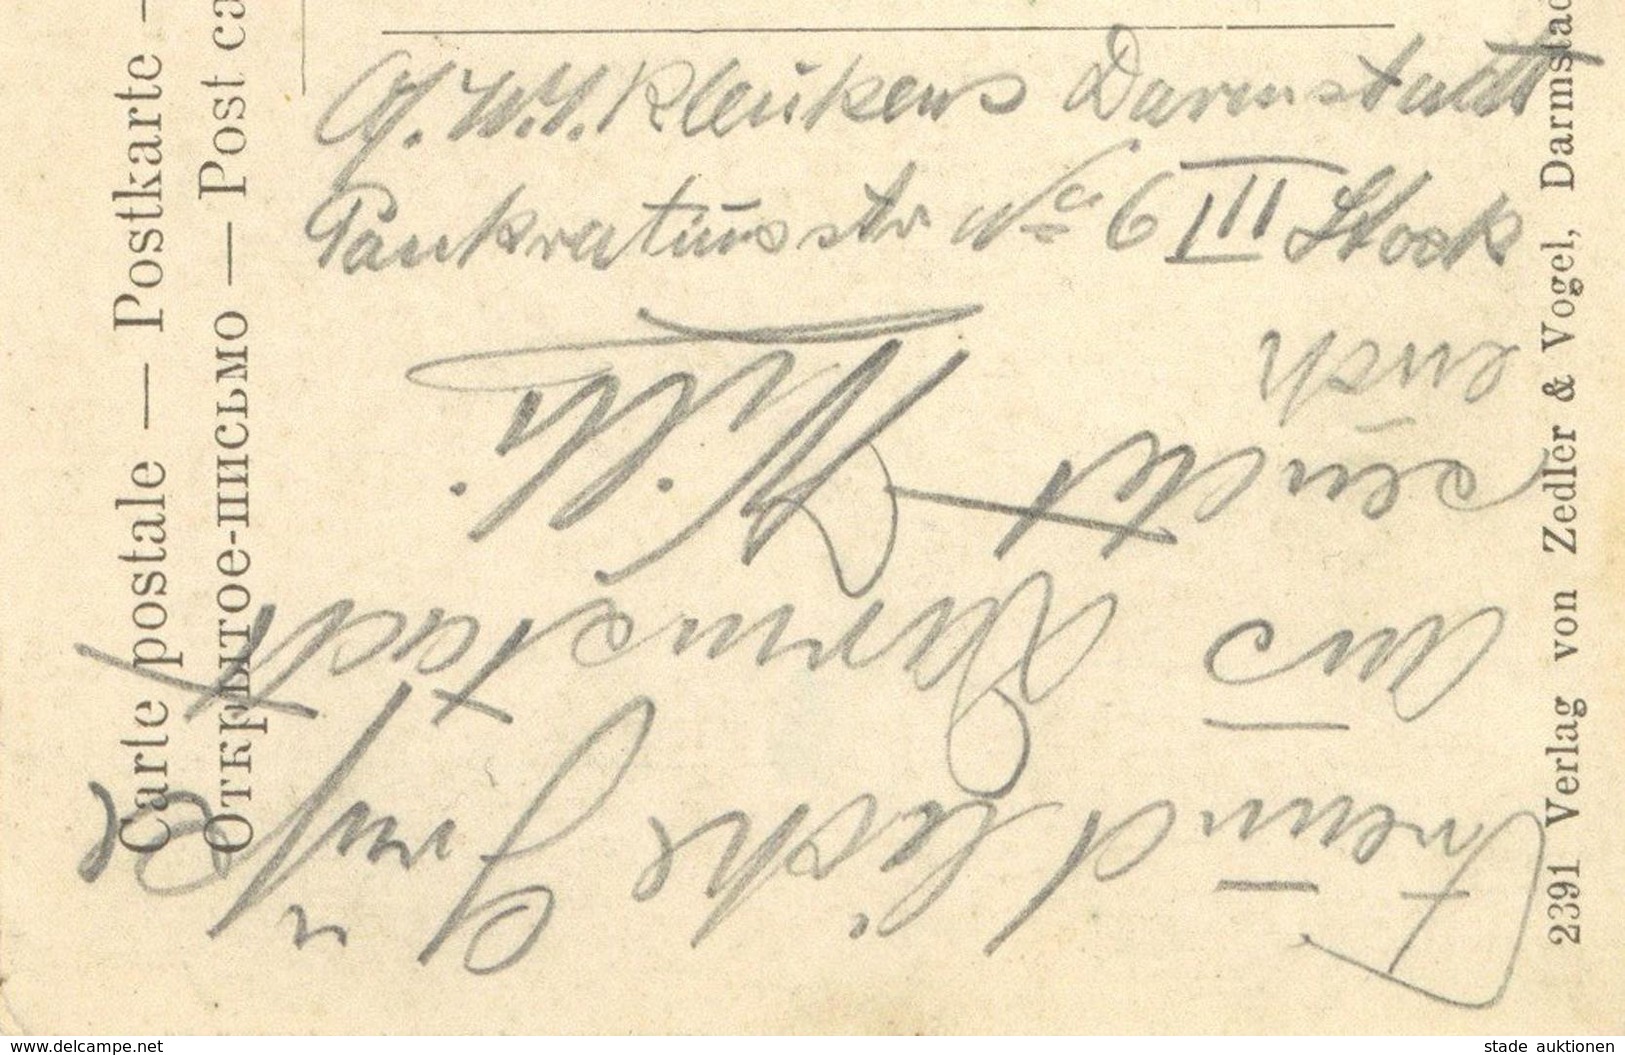 Carte postale — Postkarte —
Открытое-письмо — Post ca
W. Kleukens Darmstadt
Pankratiusstr. No 6 III Stock
Freundliche Grüße
aus Darmstadt
sendet Willi
euch
2391 Verlag von Zedler & Vogel, Darmstad
www.delcampe.net
stade auktionen